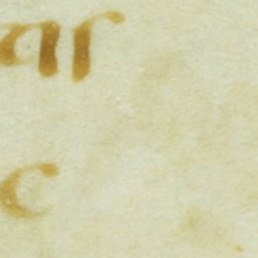 ar
c